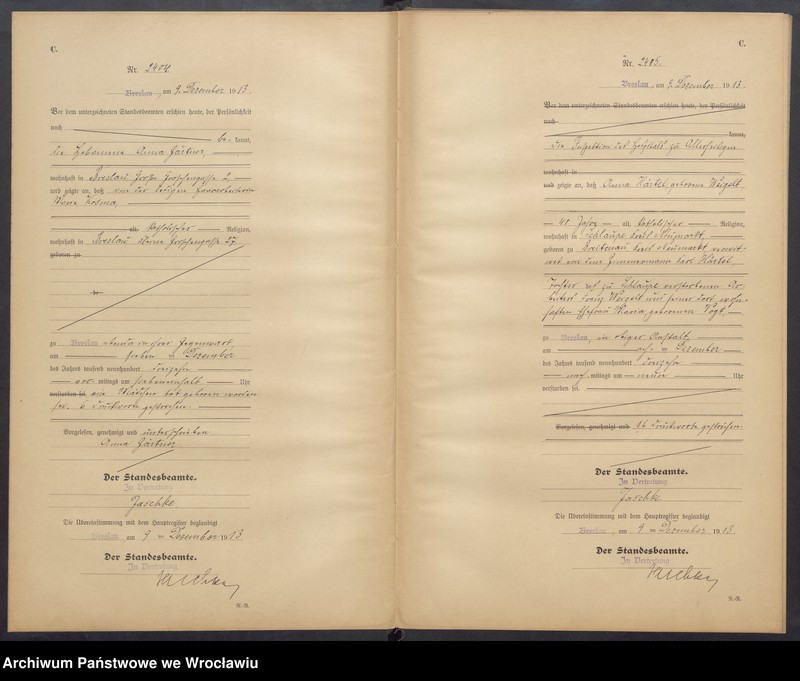 C.
Nr. 2404.
Breslau, am 9. Dezember 1913.
Vor dem unterzeichneten Standesbeamten erschien heute, der Persönlichkeit
nach
be kannt,
die Hebamme Anna Gärtner,
wohnhaft in Breslau, Große Groschengasse 2,
und zeigte an, daß von der
Maria
alt, katholischer Religion,
wohnhaft in Breslau, Kleine Groschengasse 27,
geboren zu
die
zu Breslau ebenda in ihrer Gegenwart,
am sieben ten Dezember
des Jahres tausend neunhundert dreizehn
vor mittags um siebeneinhalb Uhr
verstorben sei. ein Mädchen tot geboren worden
sei. 6 Druckworte gestrichen.
Vorgelesen, genehmigt und unterschrieben
Anna Gärtner
Der Standesbeamte.
In Vertretung
Jaschke
Die Übereinstimmung mit dem Hauptregister beglaubigt
Breslau, am 9 ten Dezember 1913.
Der Standesbeamte.
In Vertretung
Jaschke
C.
Nr. 2405.
Breslau, am 9. Dezember 1913.
Vor dem unterzeichneten Standesbeamten erschien heute, der Persönlichkeit
nach
kannt,
Die Inspektion des Hospitals zu Allerheiligen
wohnhaft in
und zeigte an, daß Anna Härtel, geborene Weigelt,
40 Jahre alt, katholischer Religion,
wohnhaft in Schlaupe, Kreis Neumarkt,
geboren zu Breitenau, Kreis Neumarkt, verwit-
wet von dem Zimmermann Karl Härtel,
Tochter des zu Schlaupe verstorbenen Ar-
beiters Franz Weigelt und seiner dort wohn-
haften Ehefrau Maria, geborenen Vogt,
zu Breslau, in obiger Anstalt,
am acht ten Dezember
des Jahres tausend neunhundert dreizehn
nach mittags um neun Uhr
verstorben sei.
Vorgelesen, genehmigt und 16 Druckworte gestrichen.
Der Standesbeamte.
In Vertretung
Jaschke
Die Übereinstimmung mit dem Hauptregister beglaubigt
Breslau, am 9 ten Dezember 1913.
Der Standesbeamte.
In Vertretung
Jaschke
Archiwum Państwowe we Wrocławiu